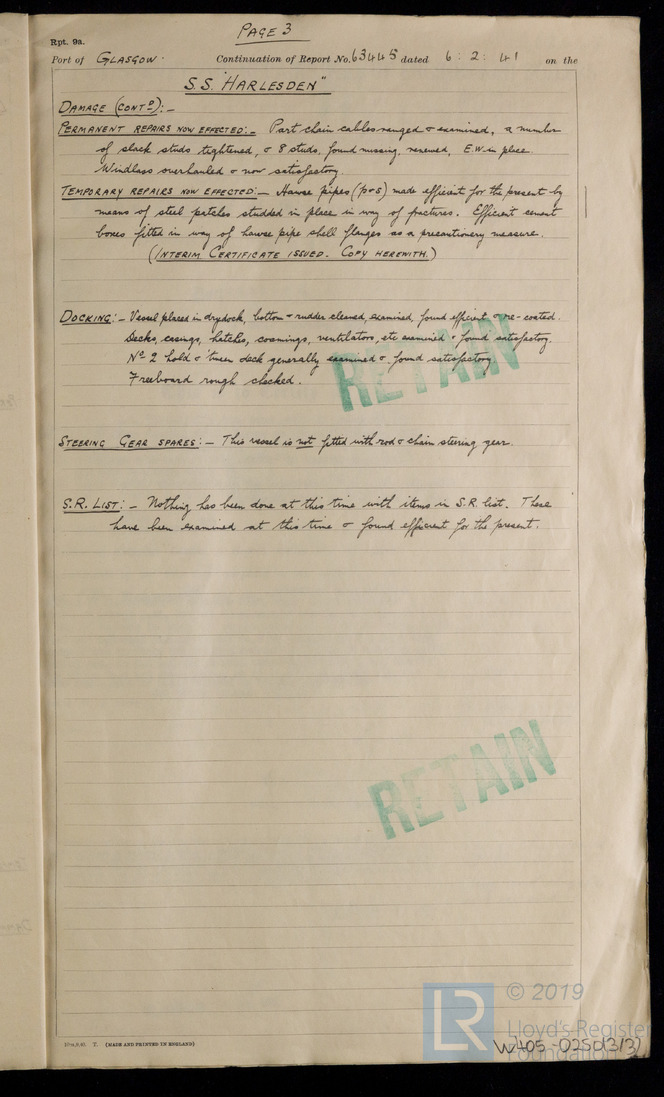 PAGE 3
Rpt. 9a.
Port of GLASGOW. Continuation of Report No. 63445 dated 6 : 2 : 41 on the
S.S. "HARLESDEN"
DAMAGE (CONTD):-
PERMANENT REPAIRS NOW EFFECTED:- Part chain cables ranged & examined, a number
of slack studs tightened, & 8 studs, found missing, renewed, E.W in place.
Windlass overhauled & now satisfactory.
TEMPORARY REPAIRS NOW EFFECTED:- Hawse pipes (p & s) made efficient for the present by
means of steel patches studded in place in way of fractures. Efficient cement
boxes fitted in way of hawse pipe shell flanges as a precautionary measure.
(INTERIM CERTIFICATE ISSUED. COPY HEREWITH.)
DOCKING:- Vessel placed in drydock, bottom & rudder cleaned, examined, found efficient & re-coated.
Decks, casings, hatches, coamings, ventilators, etc examined & found satisfactory.
No 2 hold & 'tween deck generally examined & found satisfactory.
Freeboard rough checked.
RETAIN
STEERING GEAR SPARES:- This vessel is not fitted with rod & chain steering gear.
S.R. LIST:- Nothing has been done at this time with items in S.R. list. These
have been examined at this time & found efficient for the present.
RETAIN
© 2019
LR Lloyd's Register
Foundation
W405-0250(3/3)
(MADE AND PRINTED IN ENGLAND)